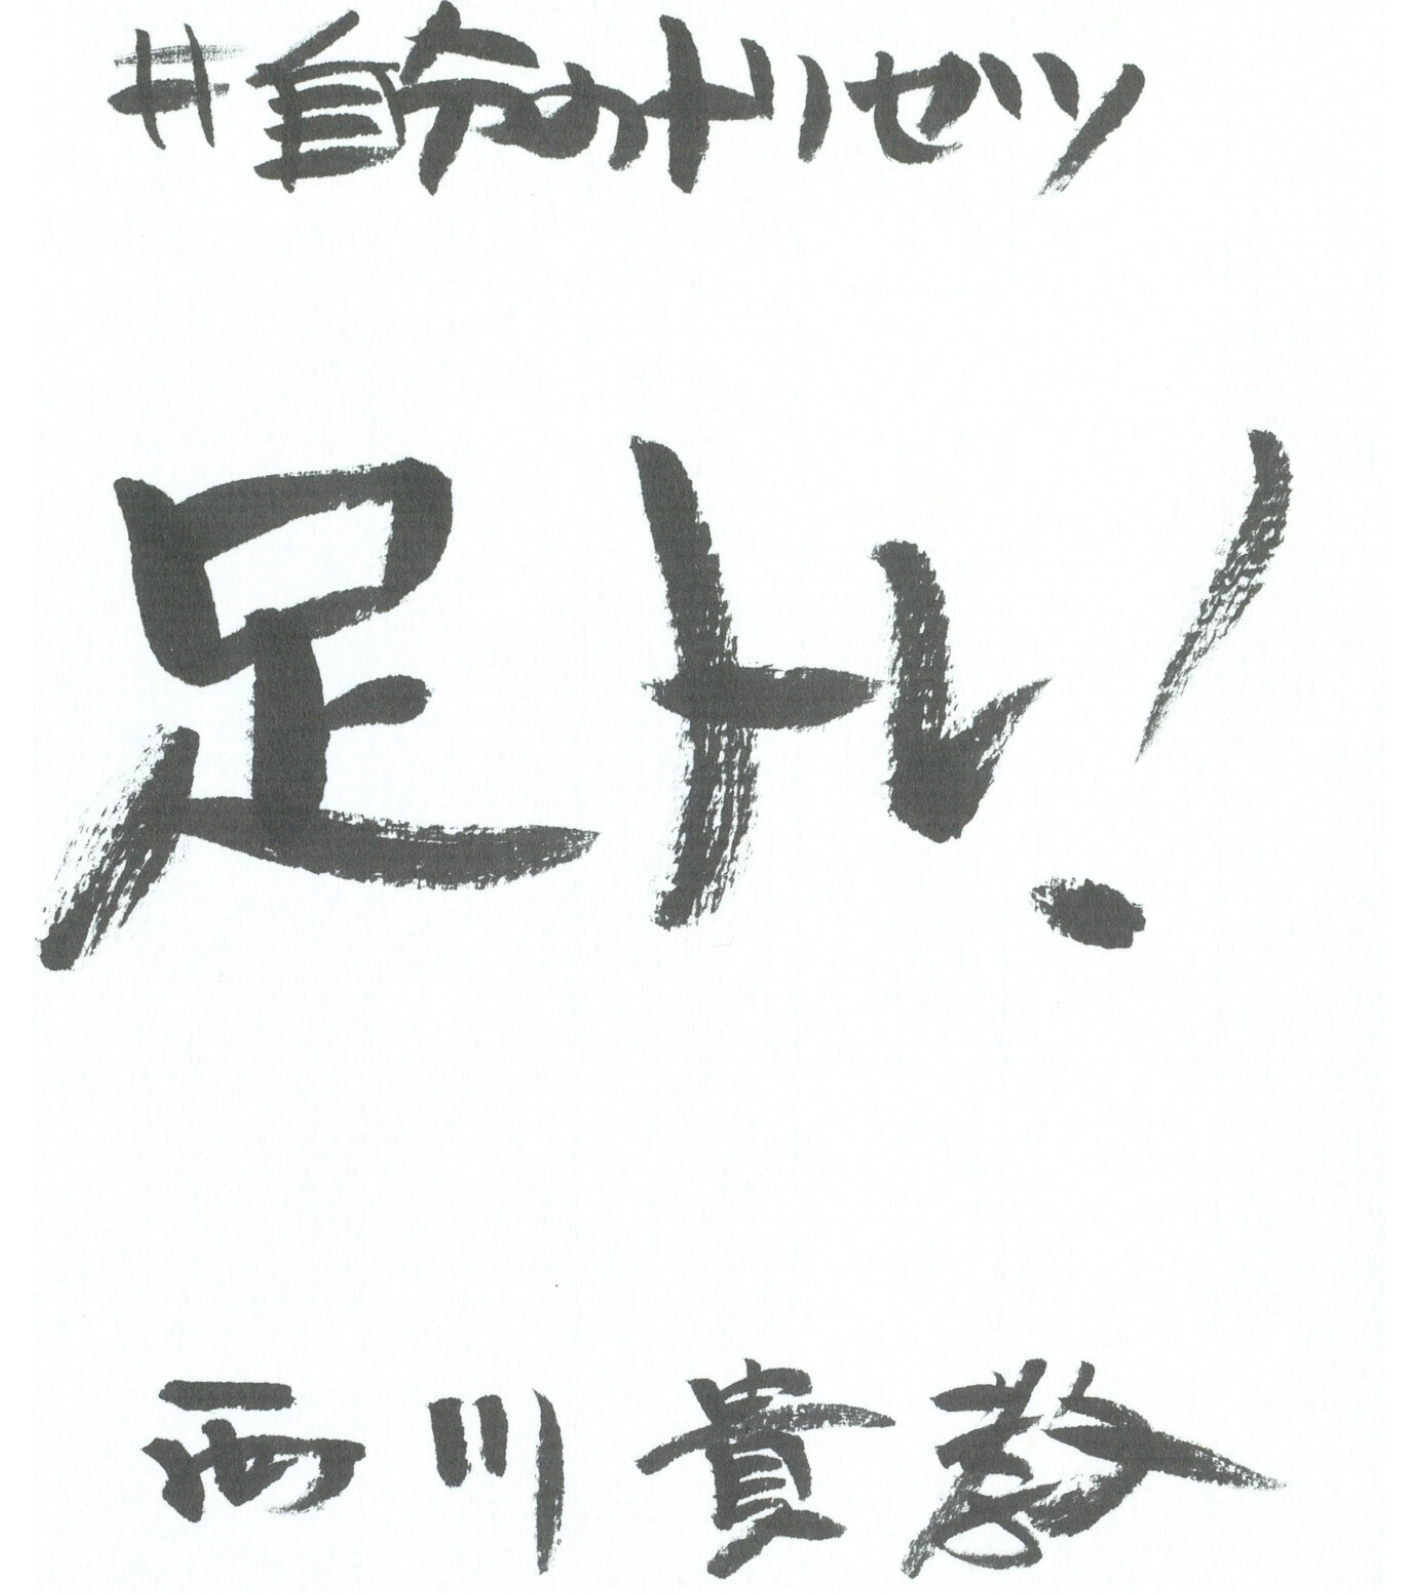 #自分のトリセツ
足トレ!
西川貴教